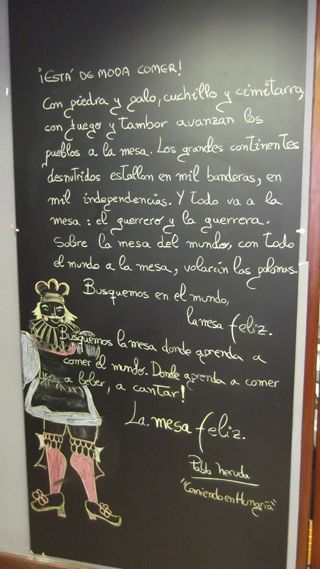 ¡ESTÁ DE MODA COMER!
Con piedra y palo, cuchillo y cimitarra,
con fuego y tambor avanzan los
pueblos a la mesa. Los grandes continentes
desnutridos estallan en mil banderas, en
mil independencias. Y todo va a la
mesa: el guerrero y la guerrera.
Sobre la mesa del mundo, con todo
el mundo a la mesa, volarán las palomas.
Busquemos en el mundo,
la mesa feliz.
Busquemos la mesa donde aprenda a
comer el mundo. Donde aprenda a comer
a beber, a cantar!
La mesa feliz.
Pablo Neruda
"Comiendo en Hungría"